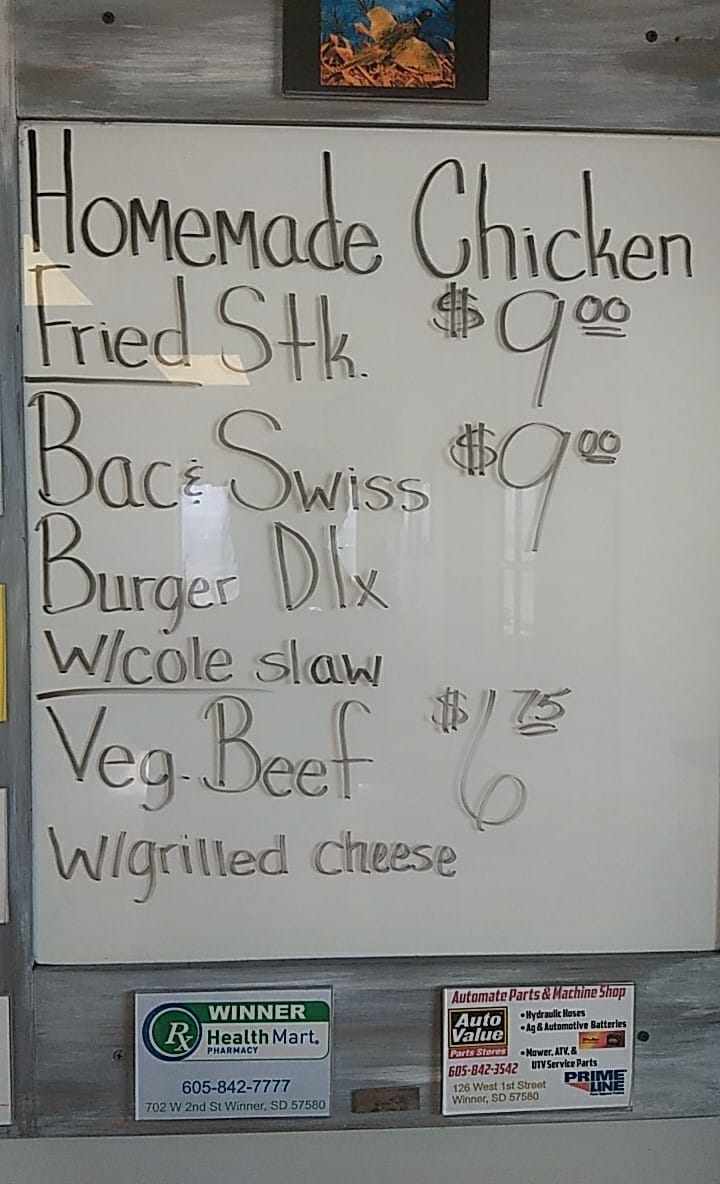 Homemade Chicken
Fried Stk. $9.00
Bac & Swiss $9.00
Burger Dlx
W/cole slaw
Veg. Beef $6.75
W/grilled cheese
Rx WINNER
Health Mart.
PHARMACY
605-842-7777
702 W 2nd St Winner, SD 57580
Automate Parts & Machine Shop
Auto Value
Parts Stores
605-842-3542
• Hydraulic Hoses
• Ag & Automotive Batteries
• Mower, ATV, &
UTV Service Parts
126 West 1st Street
Winner, SD 57580
PRIME LINE